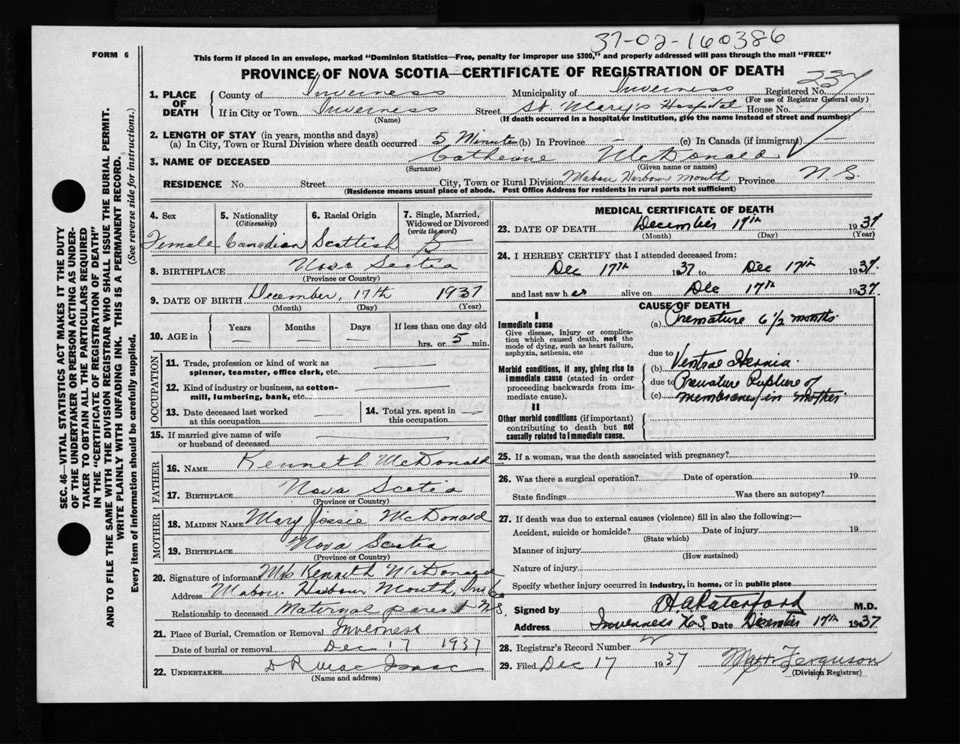 37-02-160386
FORM 6
This form if placed in an envelope, marked "Dominion Statistics—Free, penalty for improper use $300," and properly addressed will pass through the mail "FREE"
PROVINCE OF NOVA SCOTIA—CERTIFICATE OF REGISTRATION OF DEATH
1. PLACE OF DEATH
County of Inverness Municipality of Inverness Registered No. 237
(For use of Registrar General only)
If in City or Town Inverness Street St. Mary's Hospital House No.
(Name) (If death occurred in a hospital or institution, give the name instead of street and number)
2. LENGTH OF STAY (in years, months and days)
(a) In City, Town or Rural Division where death occurred 5 Minute (b) In Province (c) In Canada (if immigrant)
3. NAME OF DECEASED Catherine McDonald
(Surname) (Given name or names)
RESIDENCE No. Street City, Town or Rural Division Mabou Harbour Mouth Province N.S.
(Residence means usual place of abode. Post Office Address for residents in rural parts not sufficient)
4. Sex 5. Nationality (Citizenship) 6. Racial Origin 7. Single, Married, Widowed or Divorced (write the word)
Female Canadian Scottish S
8. BIRTHPLACE Nova Scotia
(Province or Country)
9. DATE OF BIRTH December, 17th 1937
(Month) (Day) (Year)
10. AGE in Years Months Days If less than one day old
— — — hrs. or 5 min.
OCCUPATION
11. Trade, profession or kind of work as spinner, teamster, office clerk, etc. —
12. Kind of industry or business, as cotton-mill, lumbering, bank, etc. —
13. Date deceased last worked at this occupation — 14. Total yrs. spent in this occupation —
15. If married give name of wife or husband of deceased —
FATHER
16. NAME Kenneth McDonald
17. BIRTHPLACE Nova Scotia
(Province or Country)
MOTHER
18. MAIDEN NAME Mary Jessie McDonald
19. BIRTHPLACE Nova Scotia
(Province or Country)
20. Signature of informant Mrs Kenneth McDonald
Address Mabou Harbour Mouth, Inv. Co
Relationship to deceased Maternal parent N.S.
21. Place of Burial, Cremation or Removal Inverness
Date of burial or removal Dec 17 1937
22. UNDERTAKER D R MacIsaac
(Name and address)
MEDICAL CERTIFICATE OF DEATH
23. DATE OF DEATH December 17th 1937
(Month) (Day) (Year)
24. I HEREBY CERTIFY that I attended deceased from:
Dec 17th 1937 to Dec 17th 1937.
and last saw her alive on Dec 17th 1937.
CAUSE OF DEATH
I
Immediate cause (a) Premature 6 1/2 months.
Give disease, injury or complication which caused death, not the mode of dying, such as heart failure, asphyxia, asthenia, etc
due to
Morbid conditions, if any, giving rise to immediate cause (stated in order proceeding backwards from immediate cause).
(b) Ventral Hernia.
due to Premature Rupture of
(c) membranes in mother.
II
Other morbid conditions (if important) contributing to death but not causally related to immediate cause.
25. If a woman, was the death associated with pregnancy?
26. Was there a surgical operation? Date of operation 19
State findings Was there an autopsy?
27. If death was due to external causes (violence) fill in also the following:—
Accident, suicide or homicide? Date of injury 19
(State which)
Manner of injury
(How sustained)
Nature of injury
Specify whether injury occurred in industry, in home, or in public place
Signed by M.D.
Address Inverness N.S. Date December 17th 1937
28. Registrar's Record Number
29. Filed Dec 17 1937 Ferguson
(Division Registrar)
SEC. 46—VITAL STATISTICS ACT MAKES IT THE DUTY
OF THE UNDERTAKER OR PERSON ACTING AS UNDER-
TAKER TO OBTAIN ALL THE PARTICULARS REQUIRED
IN THE "CERTIFICATE OF REGISTRATION OF DEATH"
AND TO FILE THE SAME WITH THE DIVISION REGISTRAR WHO SHALL ISSUE THE BURIAL PERMIT.
WRITE PLAINLY WITH UNFADING INK. THIS IS A PERMANENT RECORD.
Every item of information should be carefully supplied. (See reverse side for instructions.)